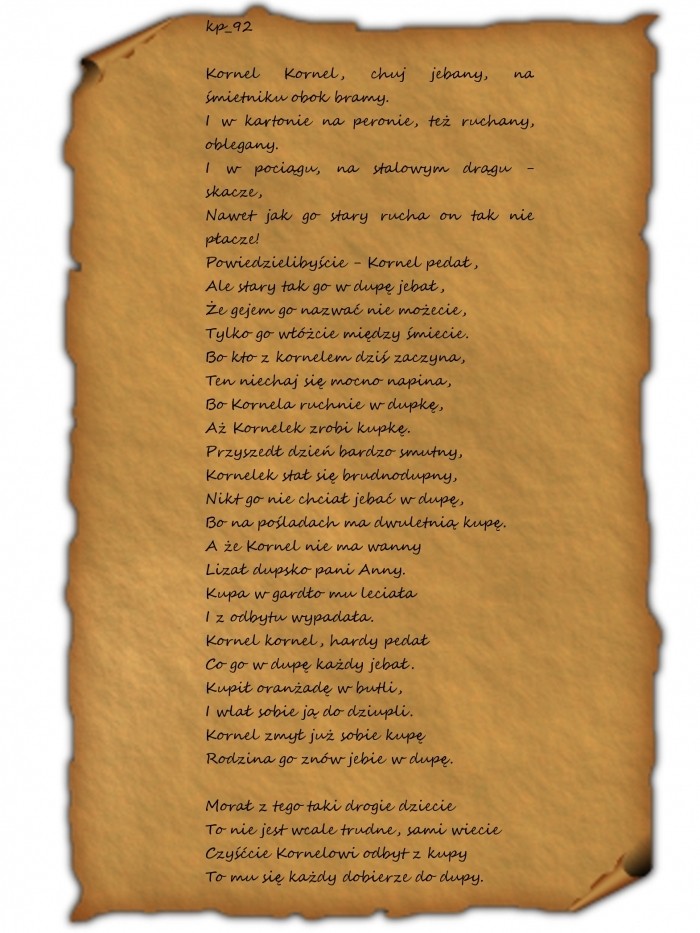 kp_92
Kornel Kornel, chuj jebany, na
śmietniku obok bramy.
I w kartonie na peronie, też ruchany,
oblegany.
I w pociągu, na stalowym drągu -
skacze,
Nawet jak go stary rucha on tak nie
płacze!
Powiedzielibyście - Kornel pedał,
Ale stary tak go w dupę jebał,
Że gejem go nazwać nie możecie,
Tylko go włóżcie między śmiecie.
Bo kto z kornelem dziś zaczyna,
Ten niechaj się mocno napina,
Bo Kornela ruchnie w dupkę,
Aż Kornelek zrobi kupkę.
Przyszedł dzień bardzo smutny,
Kornelek stał się brudnodupny,
Nikt go nie chciał jebać w dupę,
Bo na pośladach ma dwuletnią kupę.
A że Kornel nie ma wanny
Lizał dupsko pani Anny.
Kupa w gardło mu leciała
I z odbytu wypadała.
Kornel kornel, hardy pedał
Co go w dupę każdy jebał.
Kupił oranżadę w butli,
I wlał sobie ją do dziupli.
Kornel zmył już sobie kupę
Rodzina go znów jebie w dupę.
Morał z tego taki drogie dziecie
To nie jest wcale trudne, sami wiecie
Czyśćcie Kornelowi odbyt z kupy
To mu się każdy dobierze do dupy.